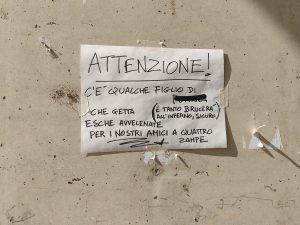 ATTENZIONE!
C'È QUALCHE FIGLIO DI
CHE GETTA (E TANTO BRUCERÀ
ESCHE AVVELENATE ALL'INFERNO, SICURO)
PER I NOSTRI AMICI A QUATTRO
ZAMPE